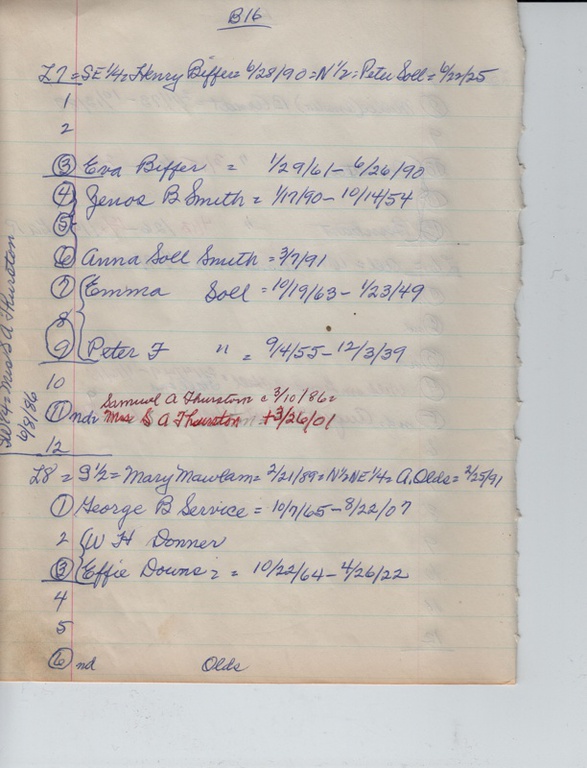 B16
L7 = SE 1/4 = Henry Biffer = 6/28/90 = N 1/2 = Peter Soll = 6/22/25
1
2
3 Eva Biffer = 1/29/61 - 6/26/90
4 Jenos B Smith = 1/17/90 - 10/14/54
5
6 Anna Soll Smith = 3/7/91
7 Emma Soll = 10/19/63 - 1/23/49
8
9 Peter F " = 9/4/55 - 12/3/39
10
Samuel A Thurston = 3/10/86 =
11 nd = Mrs S A Thurston + 3/26/01
12
SW 1/4 = Mrs S A Thurston
6/8/86
L8 = S 1/2 = Mary Mawlam = 2/21/89 = N 1/2 NE 1/4 = A. Olds = 2/25/91
1 George B Service = 10/7/65 - 8/22/07
2 W H Donner
3 Effie Downs = = 10/22/64 - 4/26/22
4
5
6 nd Olds